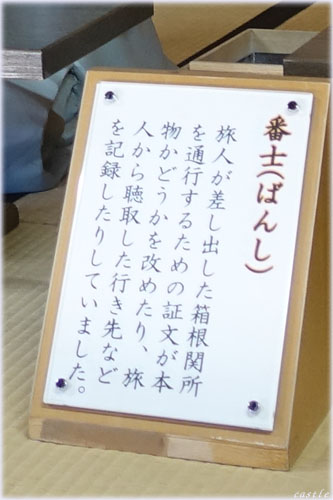 番士(ばんし)
旅人が差し出した箱根関所
を通行するための証文が本
物かどうかを改めたり、旅
人から聴取した行き先など
を記録したりしていました。
castle